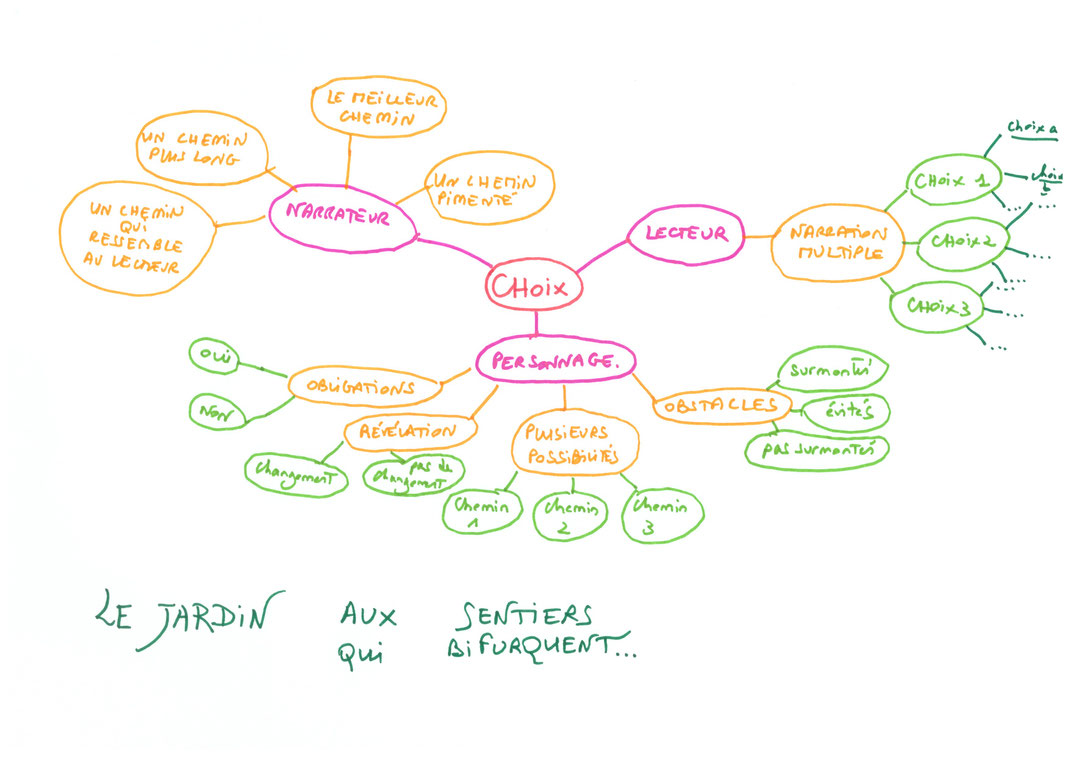 LE MEILLEUR
CHEMIN
UN CHEMIN
PLUS LONG
UN CHEMIN
PIMENTÉ
UN CHEMIN
QUI
RESSEMBLE
AU LECTEUR
NARRATEUR
CHOIX
LECTEUR
NARRATION
MULTIPLE
CHOIX 1
choix a
choix
b
...
CHOIX 2
...
...
...
CHOIX 3
...
...
...
PERSONNAGE.
OBLIGATIONS
OUI
NON
RÉVÉLATION
changement
pas de
changement
PLUSIEURS
POSSIBILITÉS
Chemin
1
Chemin
2
Chemin
3
OBSTACLES
surmontés
évités
pas surmontés
LE JARDIN AUX SENTIERS
QUI BIFURQUENT...